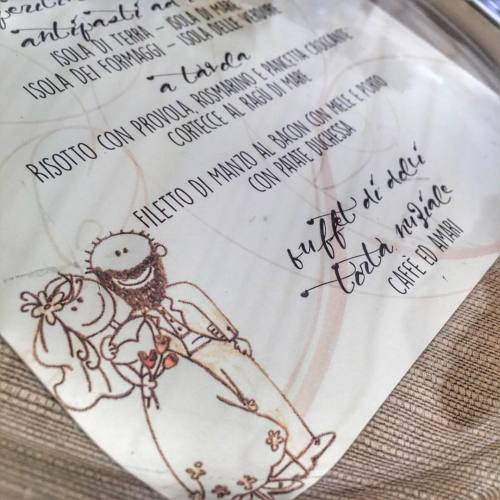 antipasti ad
ISOLA DI TERRA - ISOLA DI MARE
ISOLA DEI FORMAGGI - ISOLA DELLE VERDURE
a tavola
RISOTTO CON PROVOLA, ROSMARINO E PANCETTA CROCCANTE
CORTECCE AL RAGÙ DI MARE
FILETTO DI MANZO AL BACON CON MELE E PORTO
CON PATATE DUCHESSA
buffet di dolci
torta nuziale
CAFFÈ ED AMARI